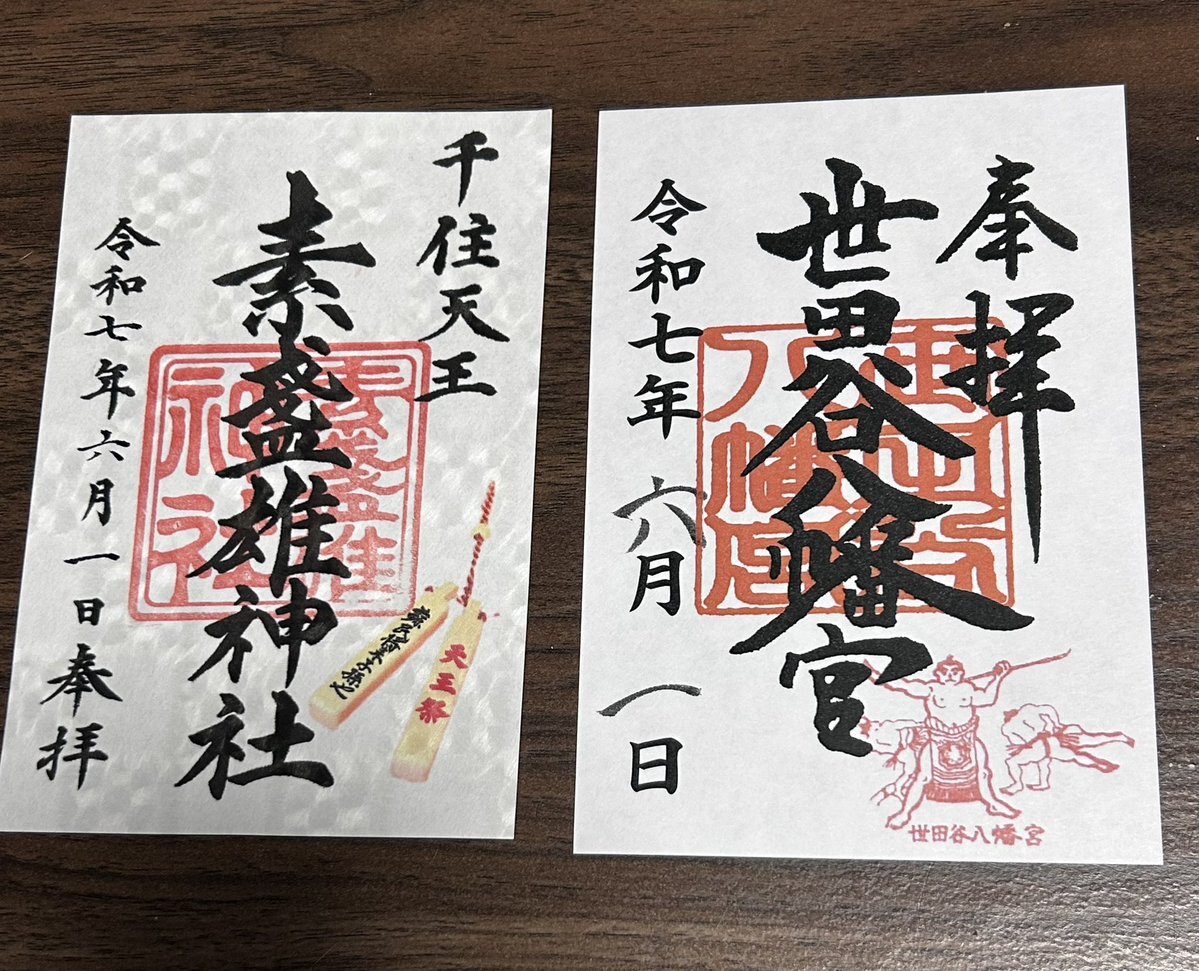 千住天王
素盞雄神社
令和七年六月一日奉拝
素盞雄
神社
蘇民将来子孫也
天王祭
奉拝
世田谷八幡宮
令和七年六月一日
世田谷
八幡宮
世田谷八幡宮